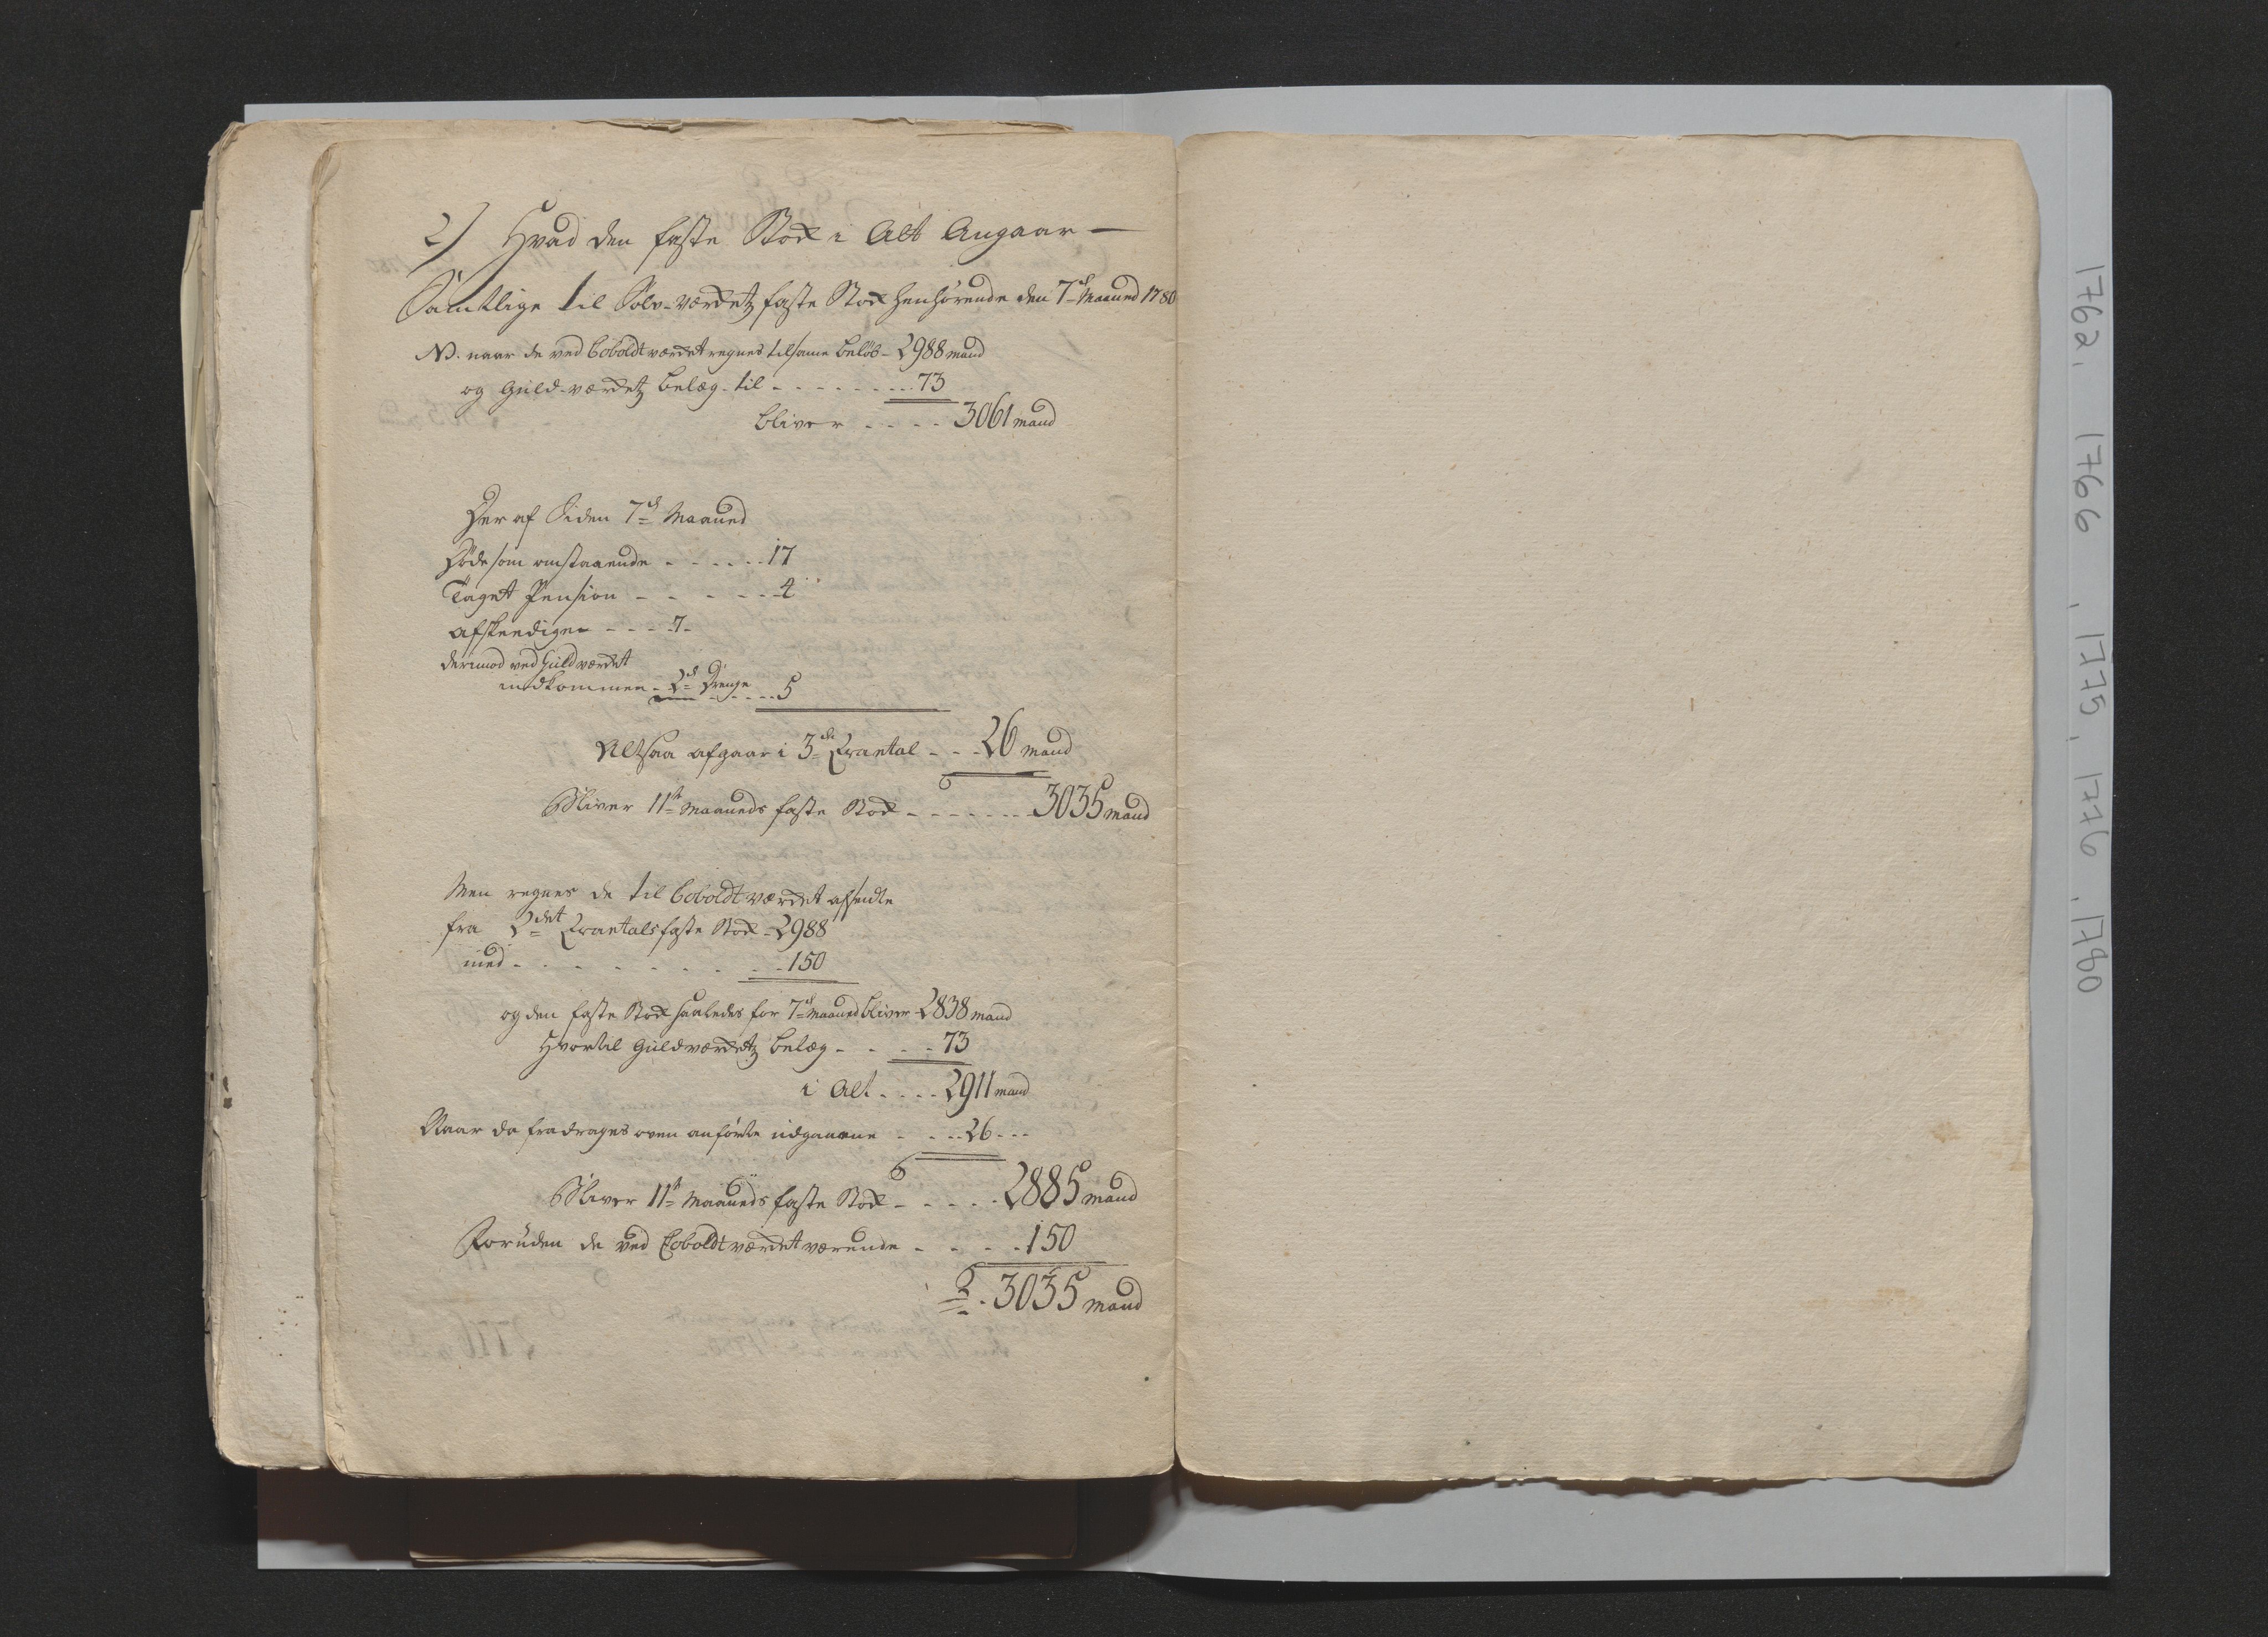 2) Hvad den faste Stok i Alt Angaar —
Samtlige til Sølv-værdet faste Stok henhørende den 7de Maaned 1780
NB. naar de ved Coboldtværdet regnes tilsame beløb - 2988 mand
og Guld-værdetz belæg. til - - - - - - - - - 73
bliver - - - - 3061 mand
Der af Siden 7de Maaned
Døde som omstaaende - - - - - - 17
Taget Pension - - - - - - - 4
Afskeediger - - - - 7 -
derimod ved Guldværdet
indkommen - 2de Drenge - - - - 5
Altsaa afgaar i 3de Qvartal - - - 26 mand
Bliver 11te Maaneds faste Stok - - - - - - - 3035 mand
Men regnes de til Coboldtværdet afsendte
fra 2det Qvartals faste Stok - 2988
med - - - - - - - - - 150
og den faste Stok saaledes for 7de Maaned bliver - 2838 mand
Hvortil Guldværdetz belæg - - - - - 73
i Alt - - - - 2911 mand
Naar da fradrages oven anførte udgaaene - - - - 26 - - -
Bliver 11te Maaneds faste Stok - - - - - 2885 mand
Foruden de ved Coboldtværdet værende - - - - - 150
3035 mand
1762. 1766. 1775, 1776. 1780